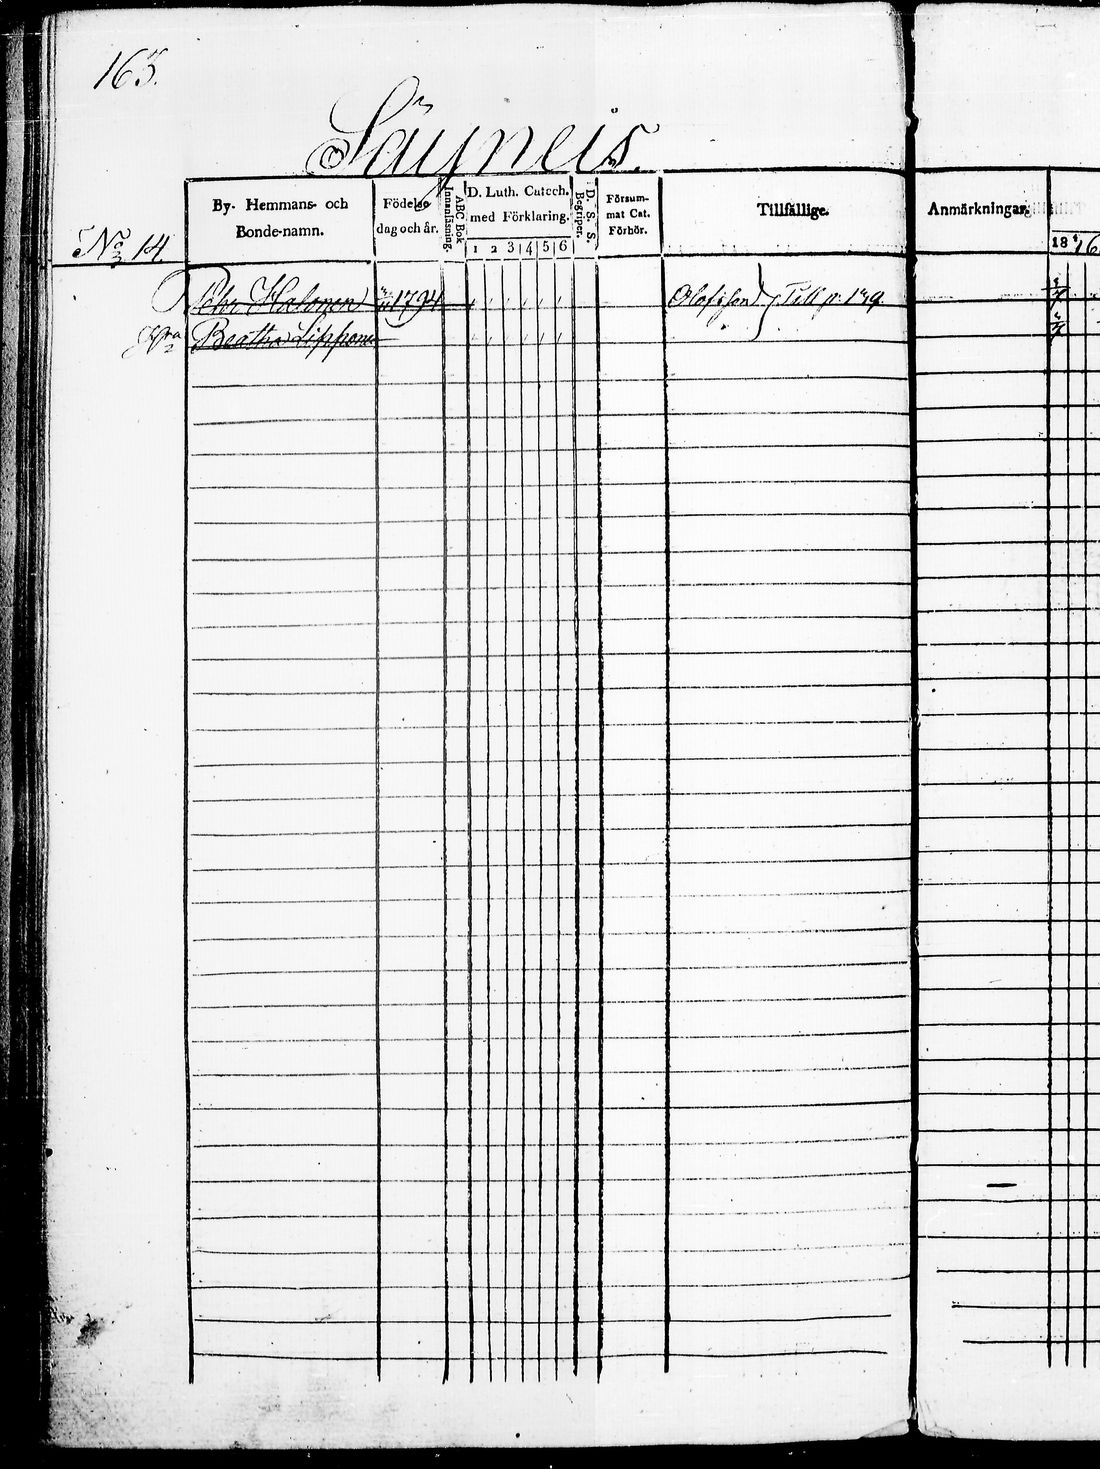 163.
Säyneis.
By- Hemmans- och Bonde-namn.
Födelse dag och år.
ABC Bok Innanläsning.
D. Luth. Catech. med Förklaring.
1 2 3 4 5 6
D. S. S. Begriper.
Försum- mat Cat. Förhör.
Tillfällige.
Anmärkningar.
18 16
No 14
Pehr Halonen 1794 Till p. 179.
Beatha Lipponen